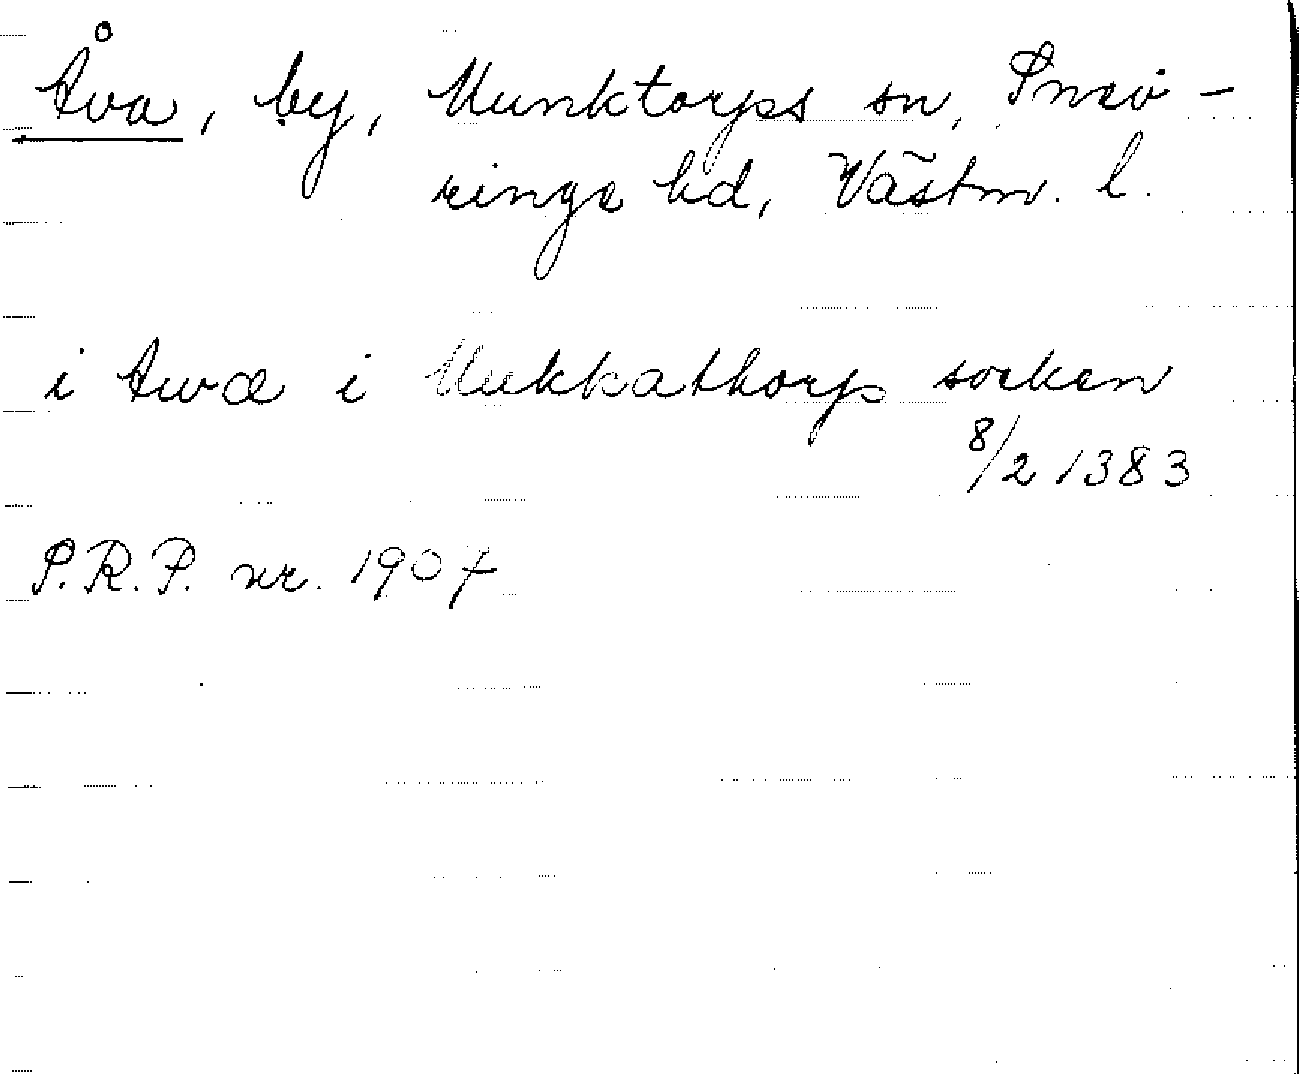 Åva, by, Munktorps sn, Snev-
ringe hd, Västm. l.
i Awæ i Mukkathorp soken
8/2 1383
S.R.P. nr. 1907